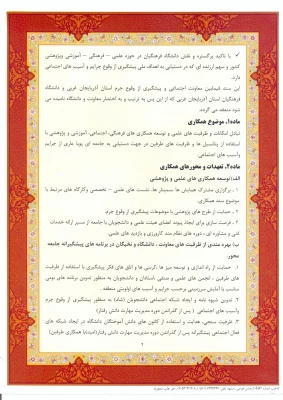 ✓ با تاکید بر گستره و نقش دانشگاه فرهنگیان در حوزه علمی – فرهنگی – آموزشی و پژوهشی
کشور و سهم ارزنده ای که در دستیابی به اهداف ملی پیشگیری از وقوع جرایم و آسیب های اجتماعی
دارد.
این سند فیمابین معاونت اجتماعی و پیشگیری از وقوع جرم استان آذربایجان غربی و دانشگاه
فرهنگیان استان آذربایجان غربی که از این پس به ترتیب و به اختصار معاونت و دانشگاه نامیده می
شود منعقد می گردد.
ماده۱. موضوع همکاری
تبادل امکانات و ظرفیت های علمی و توسعه همکاری های فرهنگی، اجتماعی، آموزشی و پژوهشی با
استفاده از پتانسیل ها و ظرفیت های علمی طرفین در جهت دستیابی به جامعه ای پویا عاری از جرایم
وآسیب های اجتماعی.
ماده۲. تعهدات و محورهای همکاری
الف) توسعه همکاری های علمی و پژوهشی
۱ . برگزاری مشترک همایش ها ،سمینارها، نشست های علمی – تخصصی وکارگاه های مرتبط با
موضوع سند همکاری.
۲ . حمایت از طرح های پژوهشی با موضوعات پیشگیری از وقوع جرم.
۳ . فرصت سازی برای ایجاد پیوند اعضای هیئت علمی و دانشجویان با جامعه از مسیر ارائه خدمات
فنی و مشاوره ای ، دوره های نظام مند کارورزی و بازدید های علمی.
ب) بهره مندی از ظرفیت های معاونت ، دانشگاه و نخبگان در برنامه های پیشگیرانه جامعه
محور.
۱ . حمایت از راه اندازی و توسعه میز ها ،کرسی ها و اتاق های فکر پیشگیری با استفاده از ظرفیت
های طرفین ، انجمن های علمی و مدنی ،استادان و دانشجویان به منظور تدوین برنامه های بومی
متناسب با آمایش سرزمینی برحسب جرایم و آسیب های اولویتی منطقه .
۲ . تدوین شیوه نامه و ایجاد شبکه اجتماعی دانشجویان (شاد) به منظور پیشگیری از وقوع جرم
وآسیب های اجتماعی ( پس از گذراندن دوره مدیریت مهارت دانش رفتار)
۳ . ظرفیت سنجی، هدایت و استفاده از کانون های دانش آموختگان دانشگاه در ایجاد شبکه های
فعال اجتماعی پیشگیرانه پس از گذراندن دوره مدیریت مهارت دانش رفتار
۲